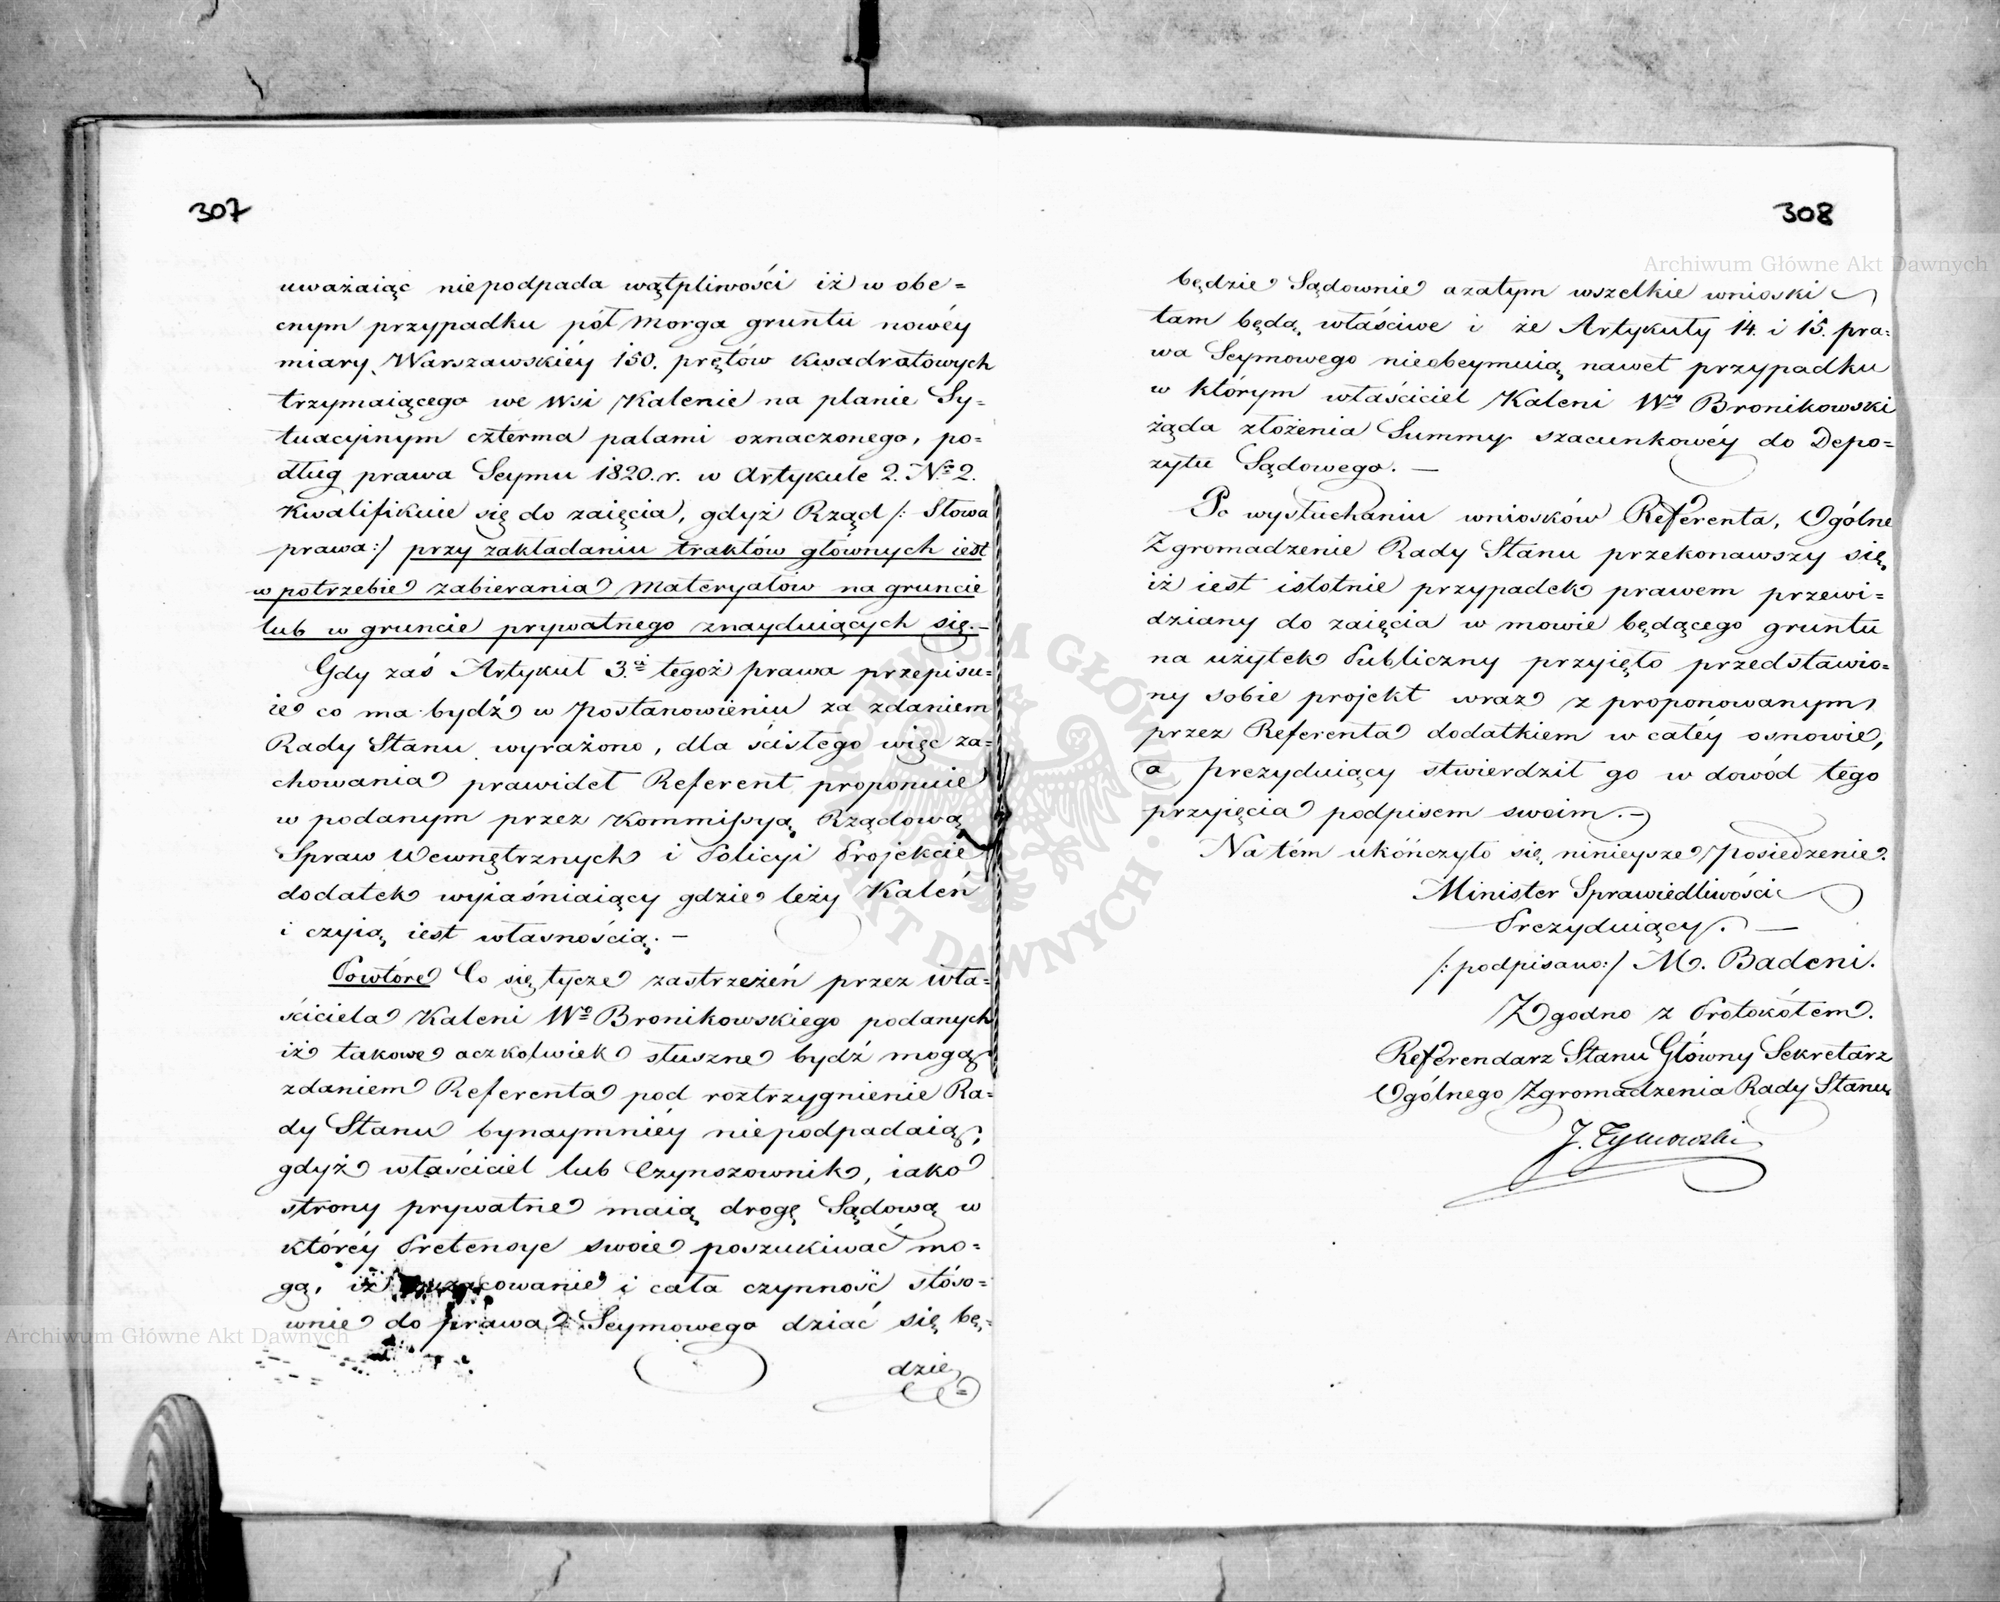 307
uważaiąc niepodpada wątpliwości iż w obe=
cnym przypadku pół morga gruntu nowéy
miary Warszawskiéy 150. prętów kwadratowych
trzymaiącego we Wsi Kalenie na planie Sy-
tuacyinym czterma palami oznaczonego, po=
dług prawa Seymu 1820. r. w Artykule 2. No 2.
kwalifikuie się do zaięcia, gdyż Rząd /: Słowa
prawa:/ przy zakładaniu traktów głównych iest
w potrzebie zabierania materyałów na gruncie
lub w gruncie prywatnego znayduiących się.—
Gdy zaś Artykuł 3.ci tegoż prawa przepisu=
ie co ma bydź w postanowieniu za zdaniem
Rady Stanu wyrażono, dla ścisłego więc za=
chowania prawideł Referent proponuie
w podanym przez Kommissyą Rządową
Spraw Wewnętrznych i Policyi Projekcie
dodatek wyiaśniaiący gdzie leży Kaleń
i czyią iest własnością. —
Powtóre Co się tycze zastrzeżeń przez wła=
ściciela Kaleni Wo Bronikowskiego podanych
iż takowe aczkolwiek słuszne bydź mogą
zdaniem Referenta pod roztrzygnienie Ra=
dy Stanu bynaymniéy niepodpadaią,
gdyż właściciel lub Czynszownik, iako
strony prywatne maią drogę Sądową w
któréy Pretensye swoie poszukiwać mo=
gą, iż i cała czynność stóso=
wnie do prawa Seymowego dziać się bę=
dzie
308
będzie Sądownie a zatym wszelkie wnioski
tam będą właściwe i że Artykuły 14. i 15. pra=
wa Seymowego nieobeymuią nawet przypadku
w którym właściciel Kaleni Wy Bronikowski
żąda złożenia Summy szacunkowéy do Depo=
zytu Sądowego. —
Po wysłuchaniu wniosków Referenta, Ogólne
Zgromadzenie Rady Stanu przekonawszy się,
iż iest istotnie przypadek prawem przewi=
dziany do zaięcia w mowie będącego gruntu
na użytek Publiczny przyięto przedstawio=
ny sobie projekt wraz z proponowanym
przez Referenta dodatkiem w całéy osnowie,
a prezyduiący stwierdził go w dowód tego
przyięcia podpisem swoim.—
Na tém ukończyło się ninieysze posiedzenie.
Minister Sprawiedliwości
Prezyduiący. —
/: podpisano:/ M. Badeni.
Zgodno z Protokółem.
Referendarz Stanu Główny Sekretarz
Ogólnego Zgromadzenia Rady Stanu
J. Tymowski
Archiwum Główne Akt Dawnych
Archiwum Główne Akt Dawnych
ARCHIWUM GŁÓWNE AKT DAWNYCH